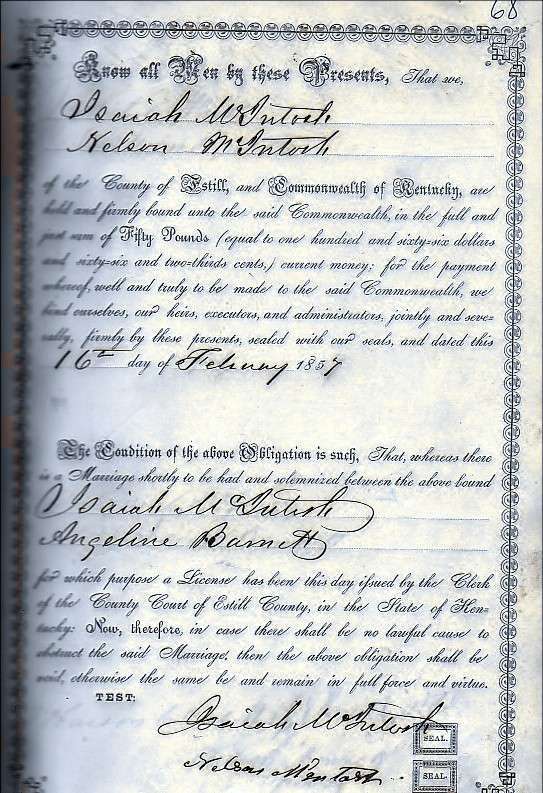 68
Know all Men by these Presents, That we,
Isaiah McIntosh
Nelson McIntosh
of the County of Estill, and Commonwealth of Kentucky, are
held and firmly bound unto the said Commonwealth, in the full and
just sum of Fifty Pounds (equal to one hundred and sixty-six dollars
and sixty-six and two-thirds cents,) current money; for the payment
whereof, well and truly to be made to the said Commonwealth, we
bind ourselves, our heirs, executors, and administrators, jointly and seve-
rally, firmly by these presents, sealed with our seals, and dated this
16th day of February 1857
The Condition of the above Obligation is such, That, whereas there
is a Marriage shortly to be had and solemnized between the above bound
Isaiah McIntosh
Angeline Barnett
for which purpose a License has been this day issued by the Clerk
of the County Court of Estill County, in the State of Ken-
tucky: Now, therefore, in case there shall be no lawful cause to
obstruct the said Marriage, then the above obligation shall be
void, otherwise the same be and remain in full force and virtue.
TEST:
Isaiah McIntosh SEAL.
Nelson McIntosh SEAL.